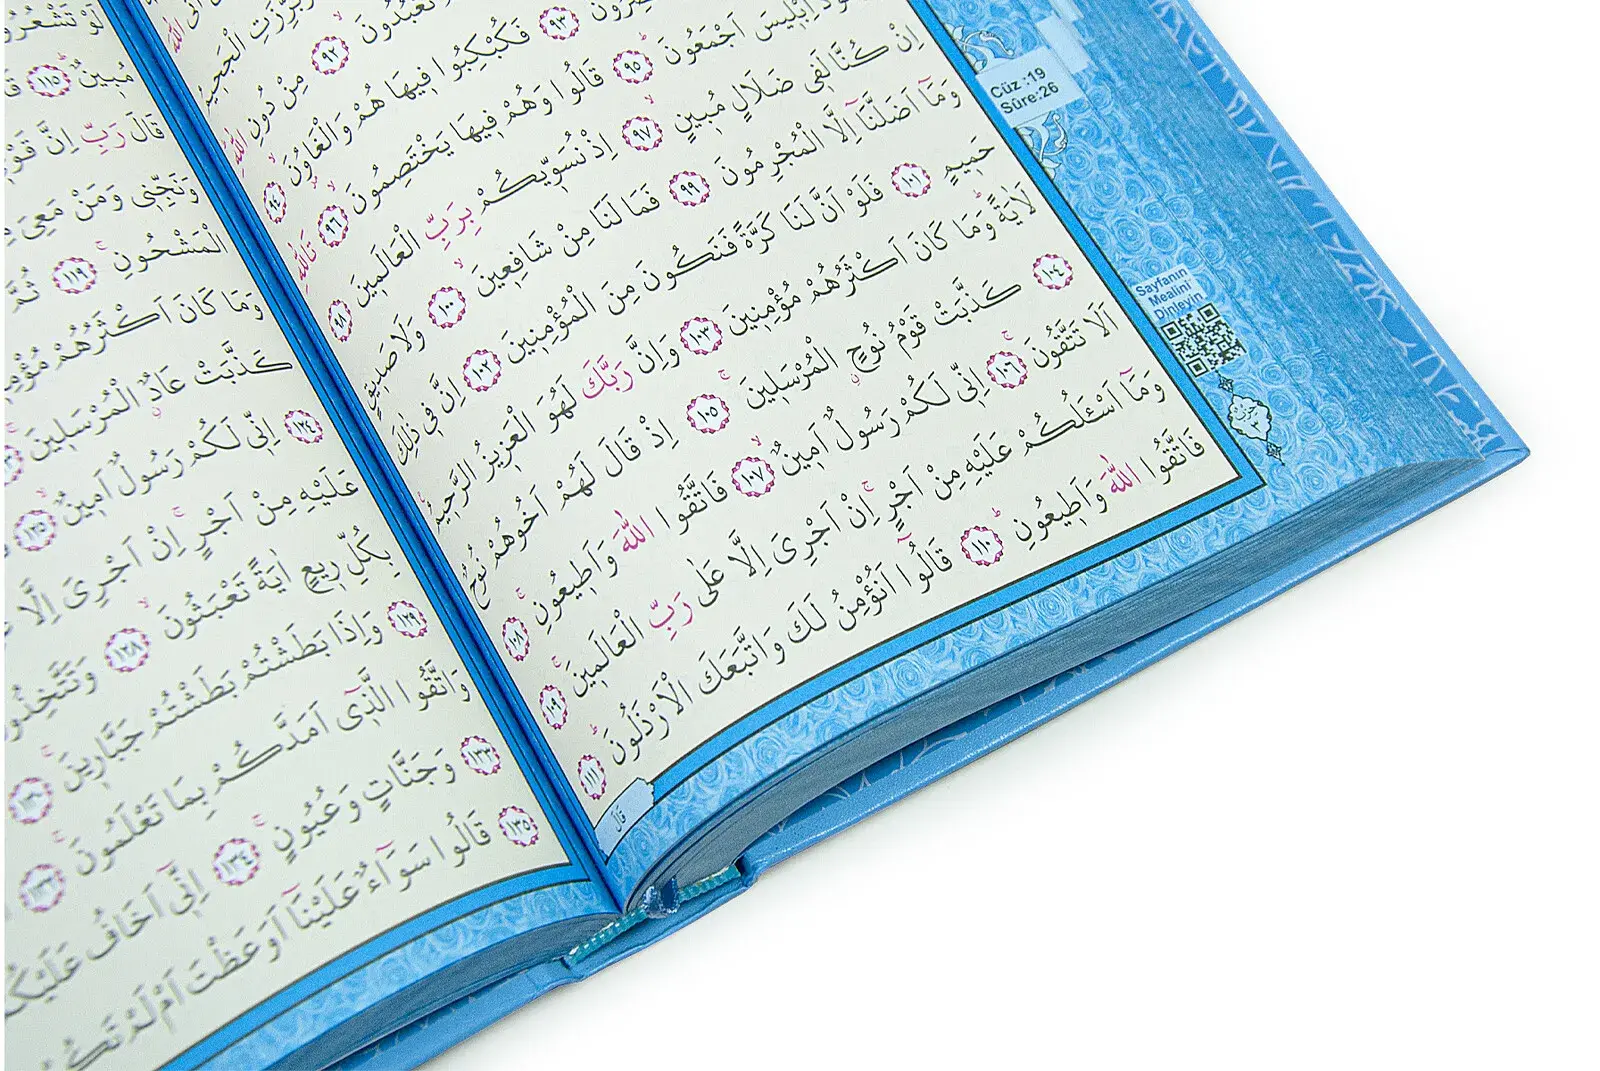 وَبُرِّزَتِ الْجَحِيمُ
تَعْبُدُونَ ﴿٩٢﴾ مِنْ دُونِ اللّٰهِ
﴿٩٣﴾ فَكُبْكِبُوا فِيهَا هُمْ وَالْغَاوُ۫نَ ﴿٩٤﴾
اِبْلِيسَ اَجْمَعُونَ ﴿٩٥﴾ قَالُوا وَهُمْ فِيهَا يَخْتَصِمُونَ ﴿٩٦﴾ تَاللّٰهِ
اِنْ كُنَّا لَفِى ضَلَالٍ مُبِينٍ ﴿٩٧﴾ اِذْ نُسَوِّيكُمْ بِرَبِّ الْعَالَمِينَ ﴿٩٨﴾
وَمَٓا اَضَلَّنَٓا اِلَّا الْمُجْرِمُونَ ﴿٩٩﴾ فَمَا لَنَا مِنْ شَافِعِينَ ﴿١٠٠﴾ وَلَا صَدِيقٍ
حَمِيمٍ ﴿١٠١﴾ فَلَوْ اَنَّ لَنَا كَرَّةً فَنَكُونَ مِنَ الْمُؤْمِنِينَ ﴿١٠٢﴾ اِنَّ فِى ذٰلِكَ
لَاٰيَةً وَمَا كَانَ اَكْثَرُهُمْ مُؤْمِنِينَ ﴿١٠٣﴾ وَاِنَّ رَبَّكَ لَهُوَ الْعَزِيزُ الرَّحِيمُ
﴿١٠٤﴾ كَذَّبَتْ قَوْمُ نُوحٍ الْمُرْسَلِينَ ﴿١٠٥﴾ اِذْ قَالَ لَهُمْ اَخُوهُمْ نُوحٌ
اَلَا تَتَّقُونَ ﴿١٠٦﴾ اِنِّى لَكُمْ رَسُولٌ اَمِينٌ ﴿١٠٧﴾ فَاتَّقُوا اللّٰهَ وَاَطِيعُونِ ﴿١٠٨﴾
وَمَٓا اَسْـَٔلُكُمْ عَلَيْهِ مِنْ اَجْرٍ اِنْ اَجْرِىَ اِلَّا عَلٰى رَبِّ الْعَالَمِينَ ﴿١٠٩﴾
فَاتَّقُوا اللّٰهَ وَاَطِيعُونِ ﴿١١٠﴾ قَالُٓوا اَنُؤْمِنُ لَكَ وَاتَّبَعَكَ الْاَرْذَلُونَ ﴿١١١﴾
قَالَ
Cüz :19
Sûre:26
Sayfanın
Mealini
Dinleyin
لَوْ تَشْعُرُونَ
مُبِينٌ ﴿١١٥﴾
قَالَ رَبِّ اِنَّ
وَنَجِّنِى وَمَنْ مَعِىَ
الْمَشْحُونِ ﴿١١٩﴾ ثُمَّ
وَمَا كَانَ اَكْثَرُهُمْ
كَذَّبَتْ عَادٌ الْمُرْسَلِينَ
﴿١٢٤﴾ اِنِّى لَكُمْ رَسُولٌ اَمِينٌ ﴿١٢٥﴾
عَلَيْهِ مِنْ اَجْرٍ اِنْ اَجْرِىَ اِلَّا
بِكُلِّ رِيعٍ اٰيَةً تَعْبَثُونَ ﴿١٢٨﴾ وَتَتَّخِذُونَ
﴿١٢٩﴾ وَاِذَا بَطَشْتُمْ بَطَشْتُمْ جَبَّارِينَ ﴿١٣٠﴾
وَاتَّقُوا الَّذِٓى اَمَدَّكُمْ بِمَا تَعْلَمُونَ ﴿١٣٢﴾
﴿١٣٣﴾ وَجَنَّاتٍ وَعُيُونٍ ﴿١٣٤﴾ اِنِّٓى اَخَافُ عَلَيْكُمْ
﴿١٣٥﴾ قَالُوا سَوَٓاءٌ عَلَيْنَٓا اَوَعَظْتَ اَمْ لَمْ تَكُنْ